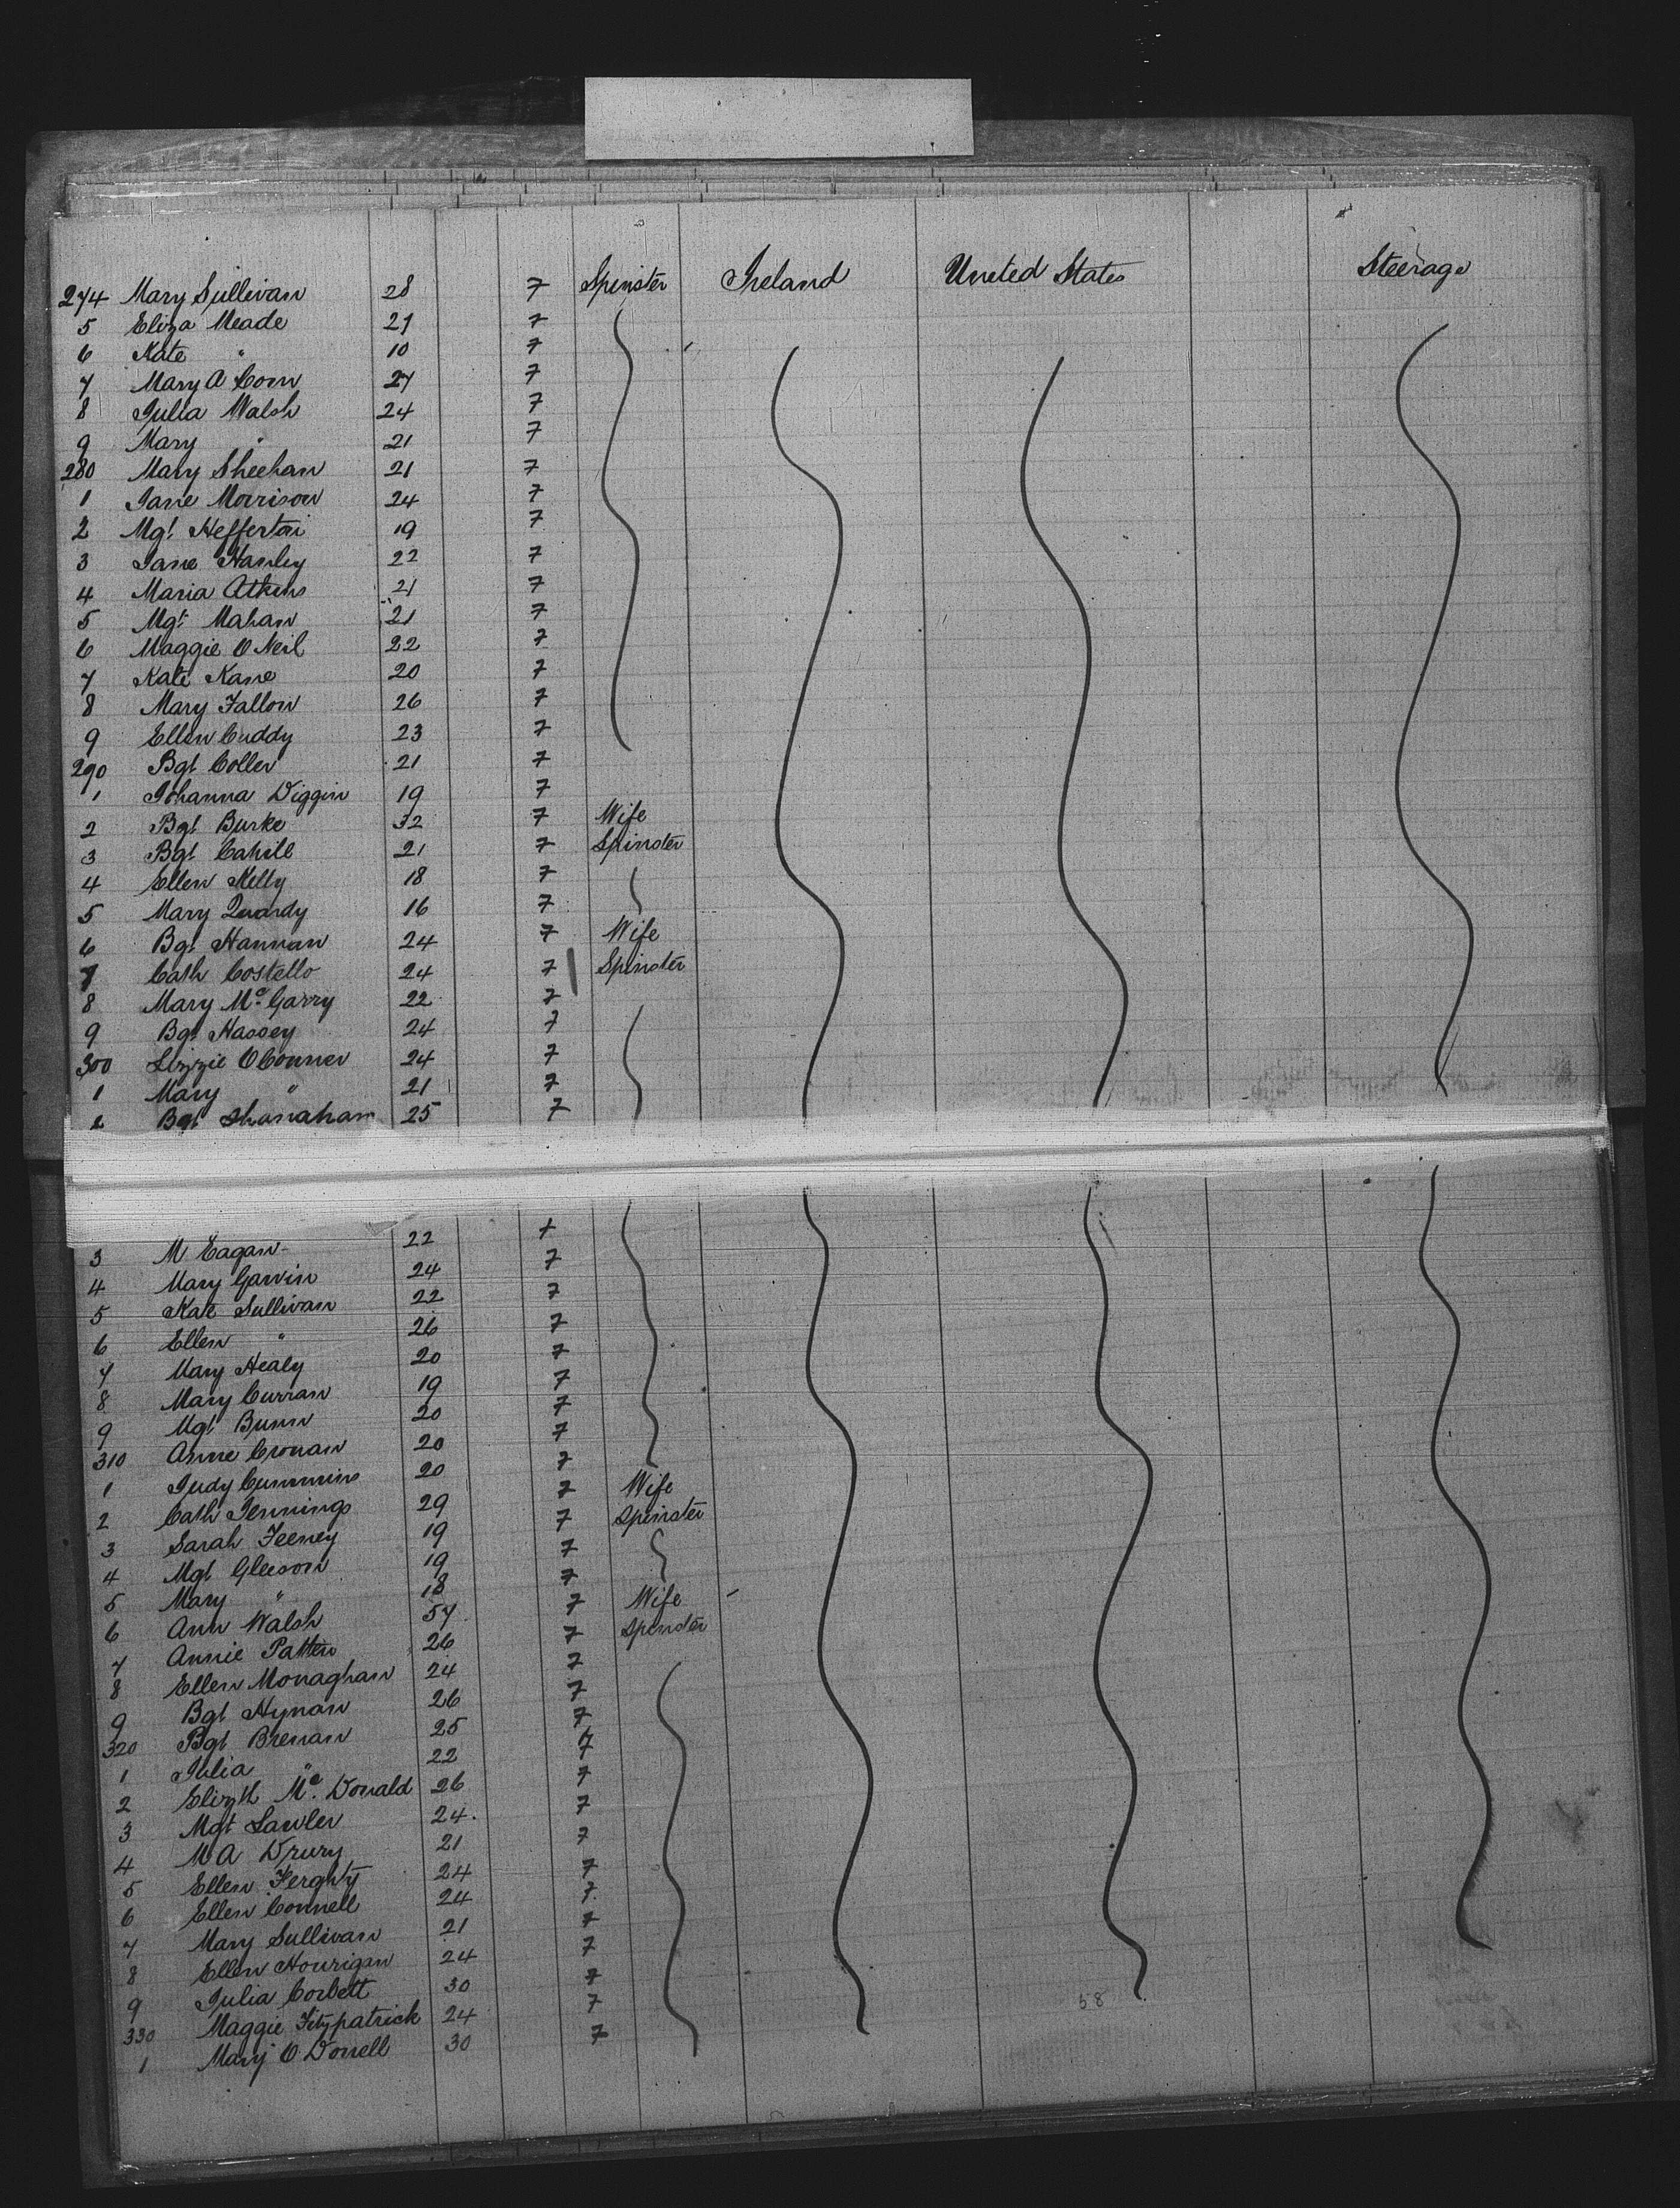 274 Mary Sullivan 28 7 Spinster Ireland United States Steerage
5 Eliza Meade 21 7
6 Kate " 10 7
7 Mary A 27 7
8 Julia Walsh 24 7
9 Mary " 21 7
280 Mary Sheehan 21 7
1 Jane Morrison 24 7
2 Mgt 19 7
3 Jane Hanley 22 7
4 Maria Atkins 21 7
5 Mgt Mahan 21 7
6 Maggie O Neil 22 7
7 Kate Kane 20 7
8 Mary Fallon 26 7
9 Ellen Cuddy 23 7
290 Bgt 21 7
1 Johanna Diggin 19 7
2 Bgt Burke 32 7 Wife
3 Bgt Cahill 21 7 Spinster
4 Ellen Kelly 18 7
5 Mary 16 7
6 Bgt Hannan 24 7 Wife
7 Cath Costello 24 7 Spinster
8 Mary Mc Garry 22 7
9 Bgt Hassey 24 7
300 Lizzie O Conner 24 7
1 Mary " 21 7
2 Bgt Shanahan 25 7
3 M Eagan 22 7
4 Mary Garvin 24 7
5 Kate Sullivan 22 7
6 Ellen " 26 7
7 Mary Healy 20 7
8 Mary Curran 19 7
9 Mgt 20 7
310 Anne Cronan 20 7
1 Judy Cummins 20 7
2 Cath Jennings 29 7 Wife
3 Sarah Feeney 19 7 Spinster
4 Mgt Gleeson 19 7
5 Mary " 18 7
6 Ann Walsh 57 7 Wife
7 Annie Patten 26 7 Spinster
8 Ellen Monaghan 24 7
9 Bgt Hynan 26 7
320 Bgt Brenan 25 7
1 Julia " 22 7
2 Elizth Mc Donald 26 7
3 Mgt Lawler 24 7
4 M A Drury 21 7
5 Ellen 24 7
6 Ellen Connell 24 7
7 Mary Sullivan 21 7
8 Ellen Hourigan 24 7
9 Julia Corbett 30 7
330 Maggie Fitzpatrick 24 7
1 Mary O Donell 30 7
58